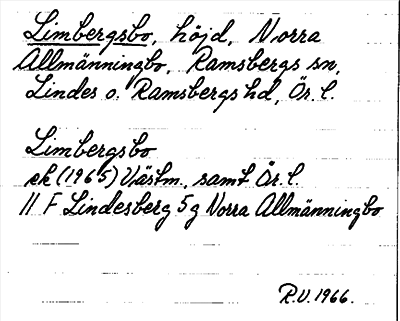 Limbergsbo, höjd, Norra
Allmänningbo, Ramsbergs sn,
Lindes o. Ramsbergs hd, Ör. l.
Limbergsbo
ek (1965) Västm., samt Ör. l.
11 F Lindesberg 5 g Norra Allmänningbo
R.U. 1966.